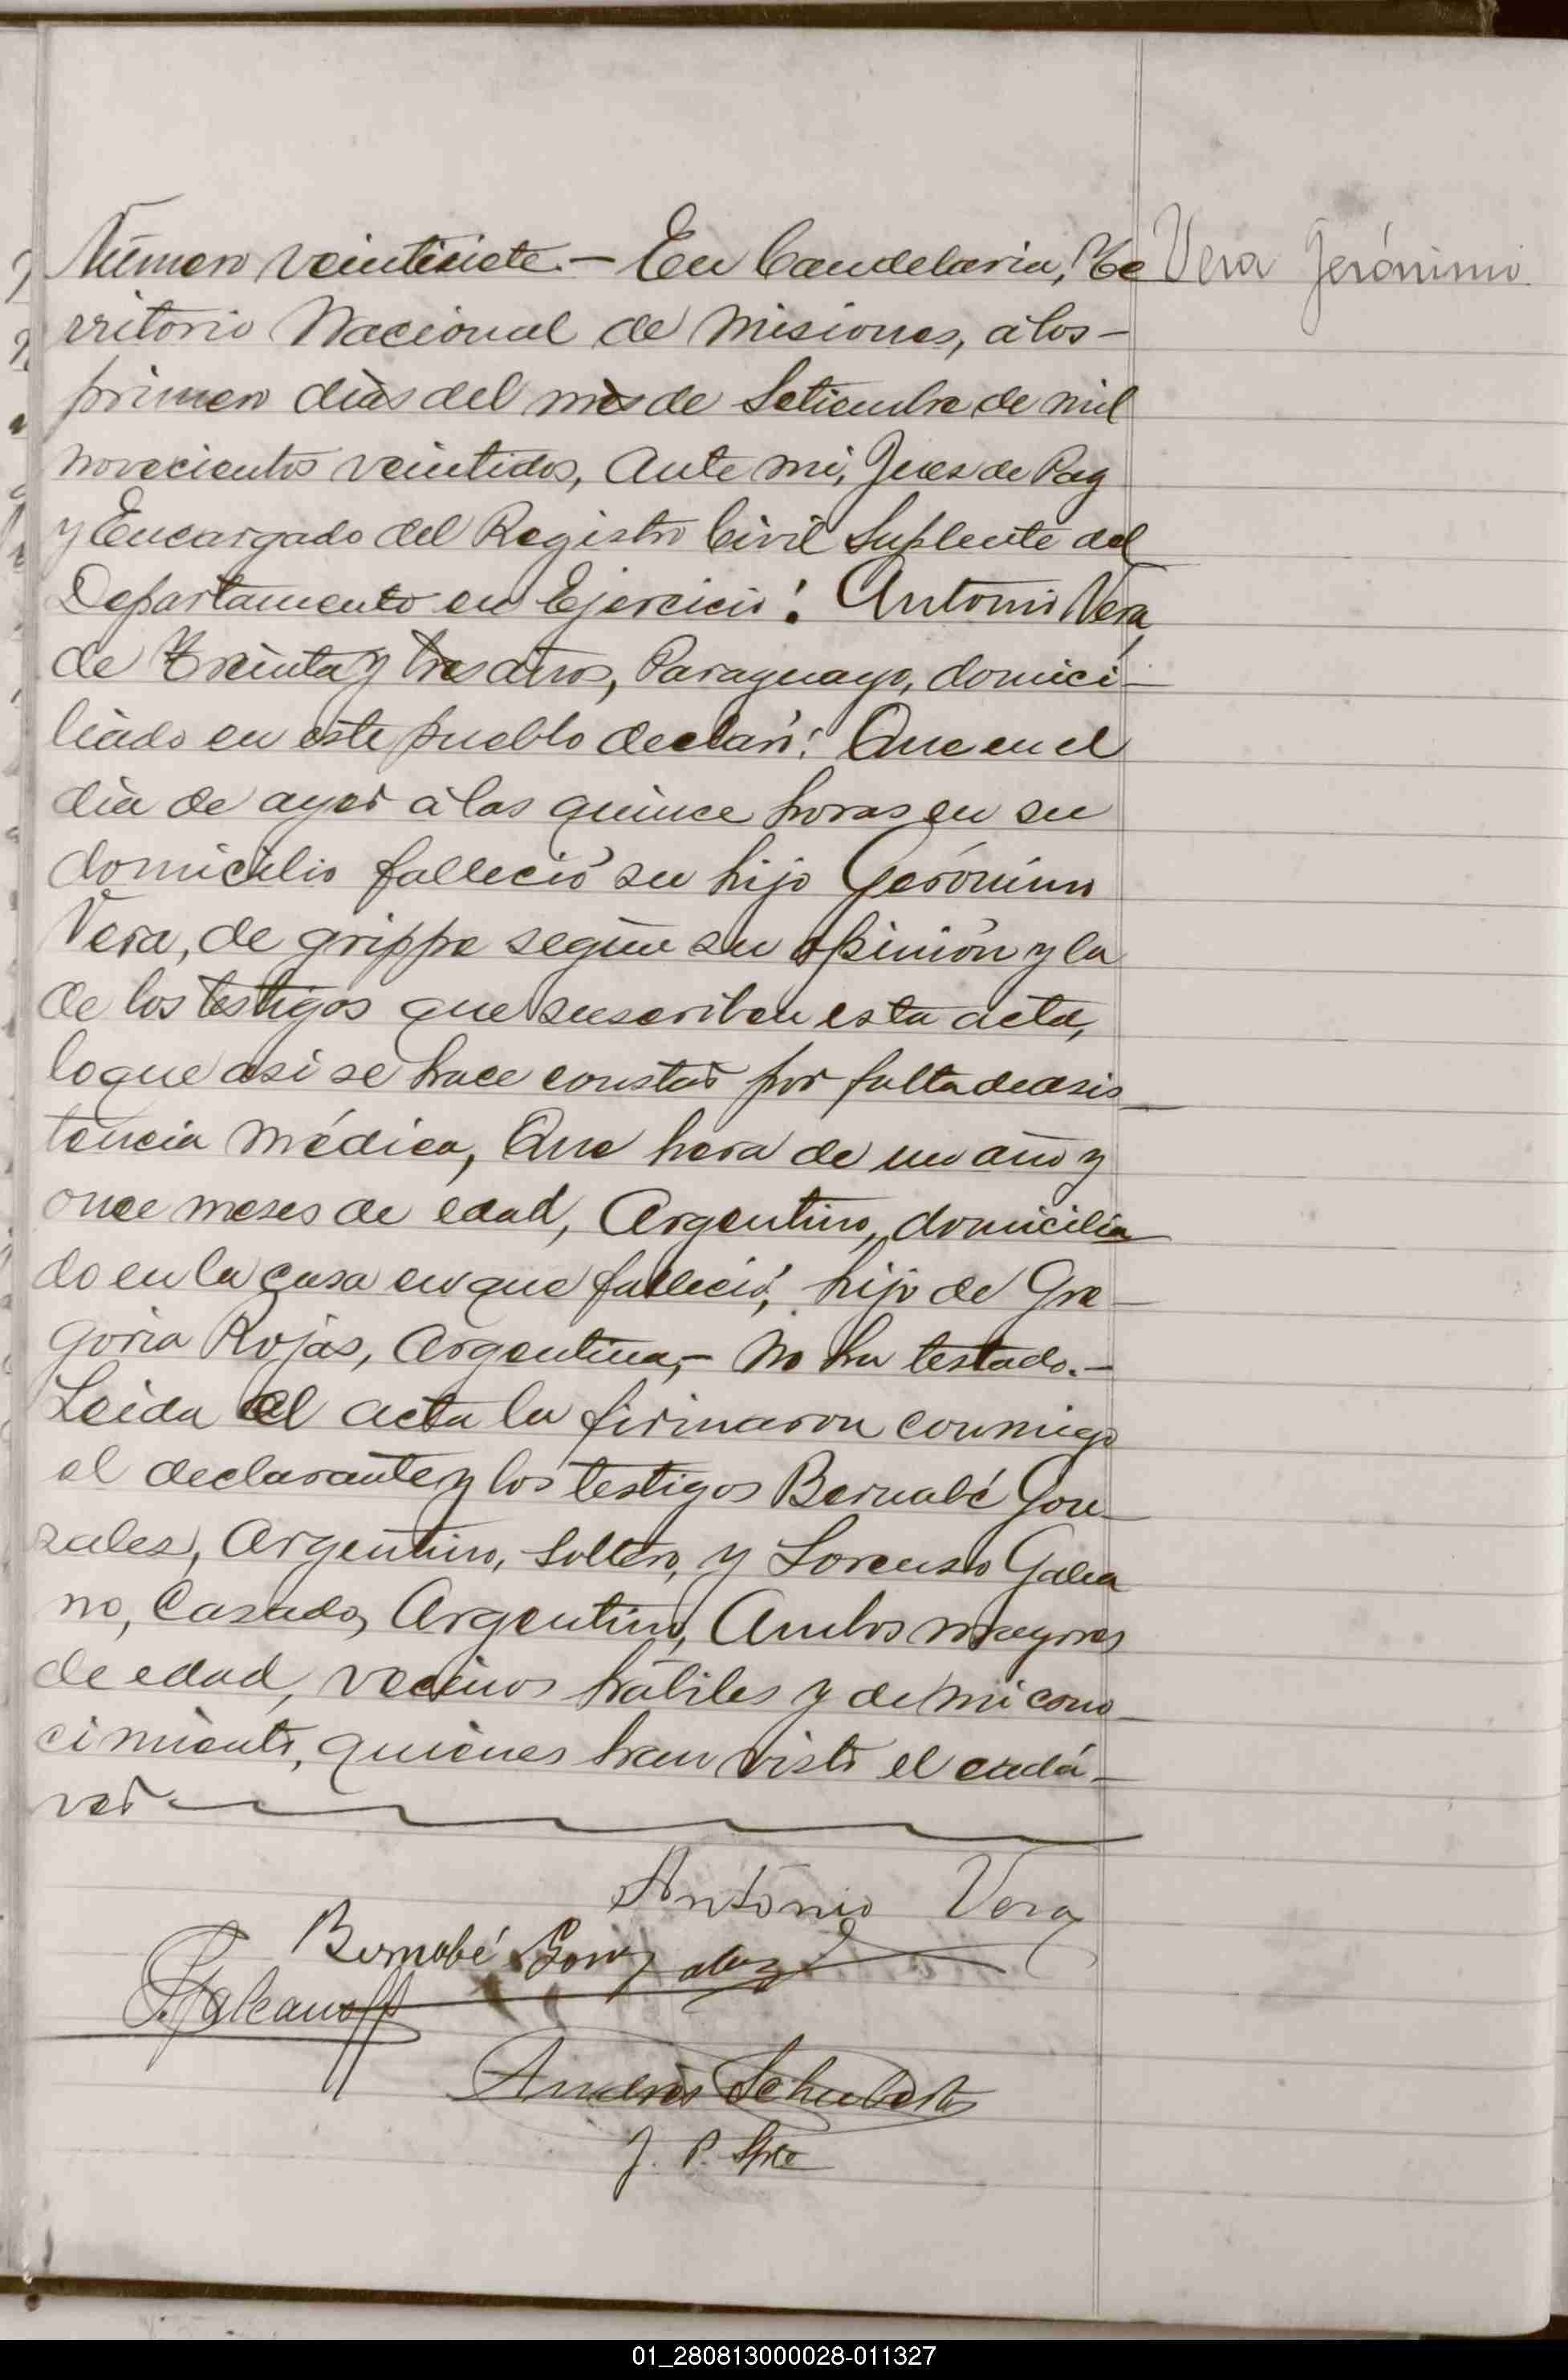 Número veintisiete.- En Candelaria, Te
Vera Jerónimo
rritorio Nacional de Misiones, á los-
primero dias del mes de Setiembre de mil
novecientos veintidos, Ante mi, Juez de Paz
y Encargado del Registro Civil Suplente del
Departamento en Ejercicio: Antonio Vera,
de treinta y tres años, Paraguayo, domici-
liado en este pueblo declaró: Que en el
dia de ayer á las quince horas en su
domicilio falleció su hijo Gerónimo
Vera, de grippe según su opinión y la
de los testigos que suscriben esta acta,
lo que asi se hace constar por falta de asis-
tencia médica, Que hera de un año y
once meses de edad, Argentino, domicilia
do en la casa en que falleció, hijo de Gre-
goria Rojas, Argentina,- No ha testado.-
Leida el acta la firmaron conmigo
el declarante y los testigos Bernabé Gon-
zales, Argentino, Soltero, y Lorenzo Galea
no, Casado, Argentino, Ambos mayores
de edad, vecinos hábiles y de mi cono-
cimiento, quiénes han visto el cadá-
ver
Antonio Vera
Bernabé Gonzalez
Galeano
Andrés Schubert
J. P. Splte